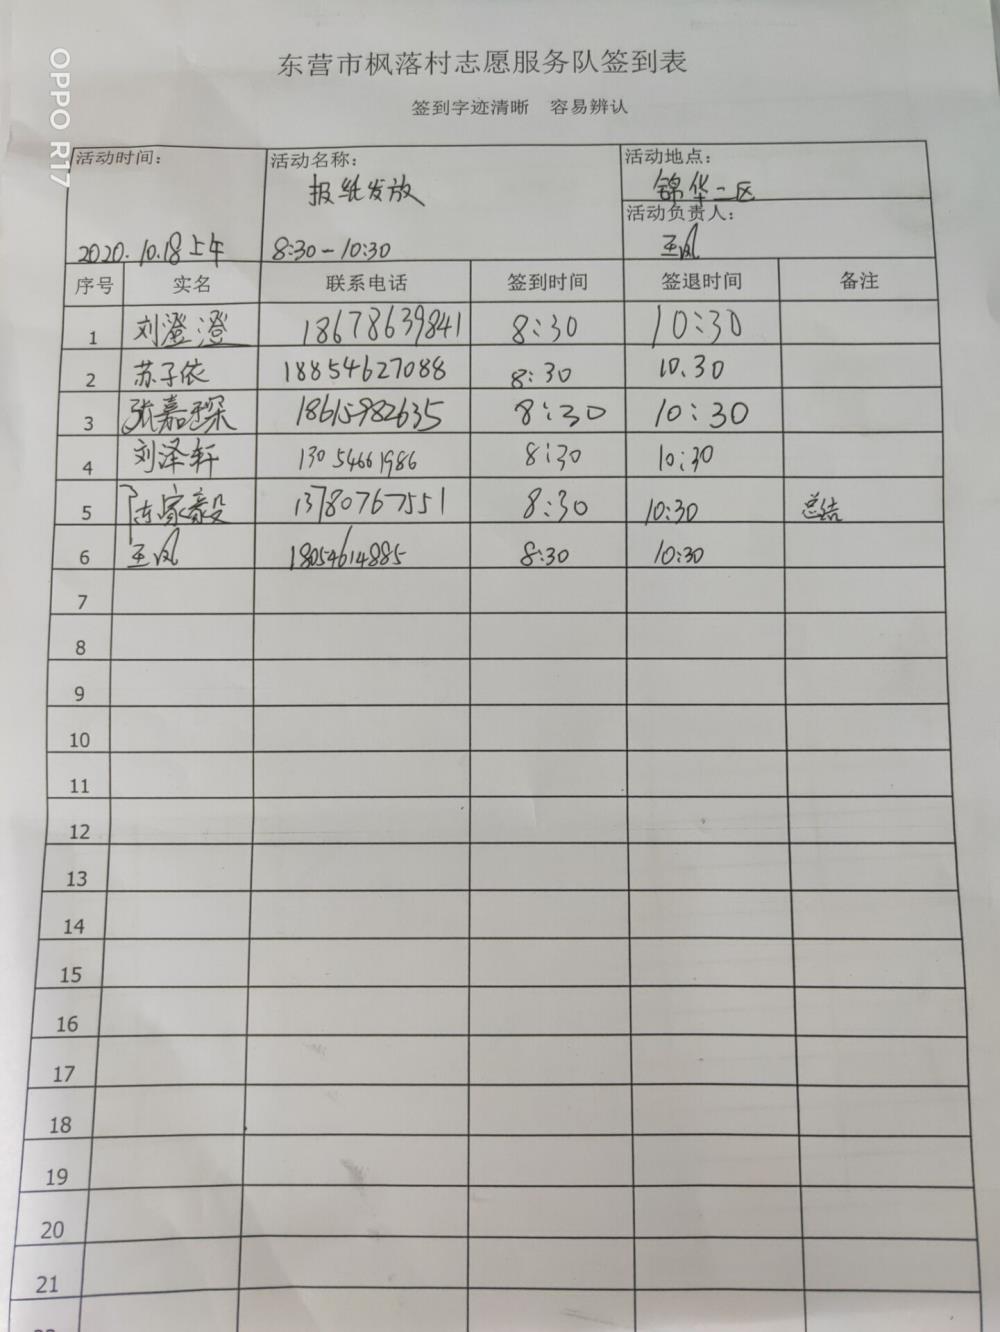 OPPO R17
东营市枫落村志愿服务队签到表
签到字迹清晰 容易辨认
活动时间： 活动名称： 活动地点：
报纸发放 锦华二区
活动负责人：
2020.10.18上午 8:30-10:30 王凤
序号 实名 联系电话 签到时间 签退时间 备注
1 刘澄澄 18678639841 8:30 10:30
2 苏子依 18854627088 8:30 10.30
3 张嘉琛 18615982635 8:30 10:30
4 刘泽轩 13054661986 8:30 10:30
5 陈家毅 13780767551 8:30 10:30 总结
6 王凤 18054614885 8:30 10:30
7
8
9
10
11
12
13
14
15
16
17
18
19
20
21